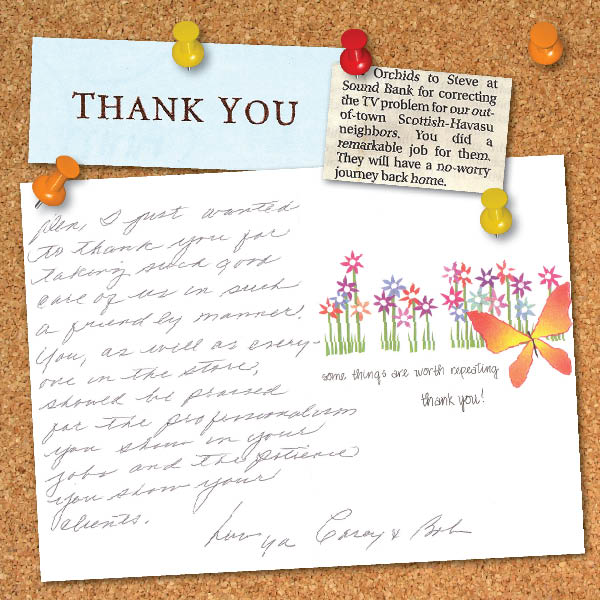 THANK YOU
Orchids to Steve at
Sound Bank for correcting
the TV problem for our out-
of-town Scottish-Havasu
neighbors. You did a
remarkable job for them.
They will have a no-worry
journey back home.
I just wanted
to thank you for
taking such good
care of us in such
a friendly manner.
You, as well as every-
one in the store,
should be praised
for the professionalism
you show in your
jobs and the patience
you show your
clients.
Luv ya Casey & Bob
some things are worth repeating
thank you!